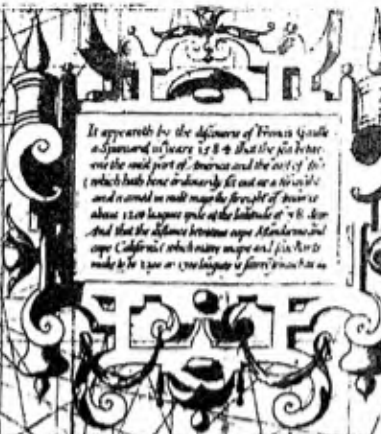 It appeareth by the discourse of Francis Gaulle
a Spaniard in yeare 1584 that the sea betw-
ene the west part of America and the east of
which hath bene ordinarily set out as a
and named in most maps the streight of
about 1200 leagues wyde at the latitude of 38 degr
And that the distance betweene cape Mendocino and
cape California which many mapes and sea charts
make to be 1200 or 1300 leagues is scarce